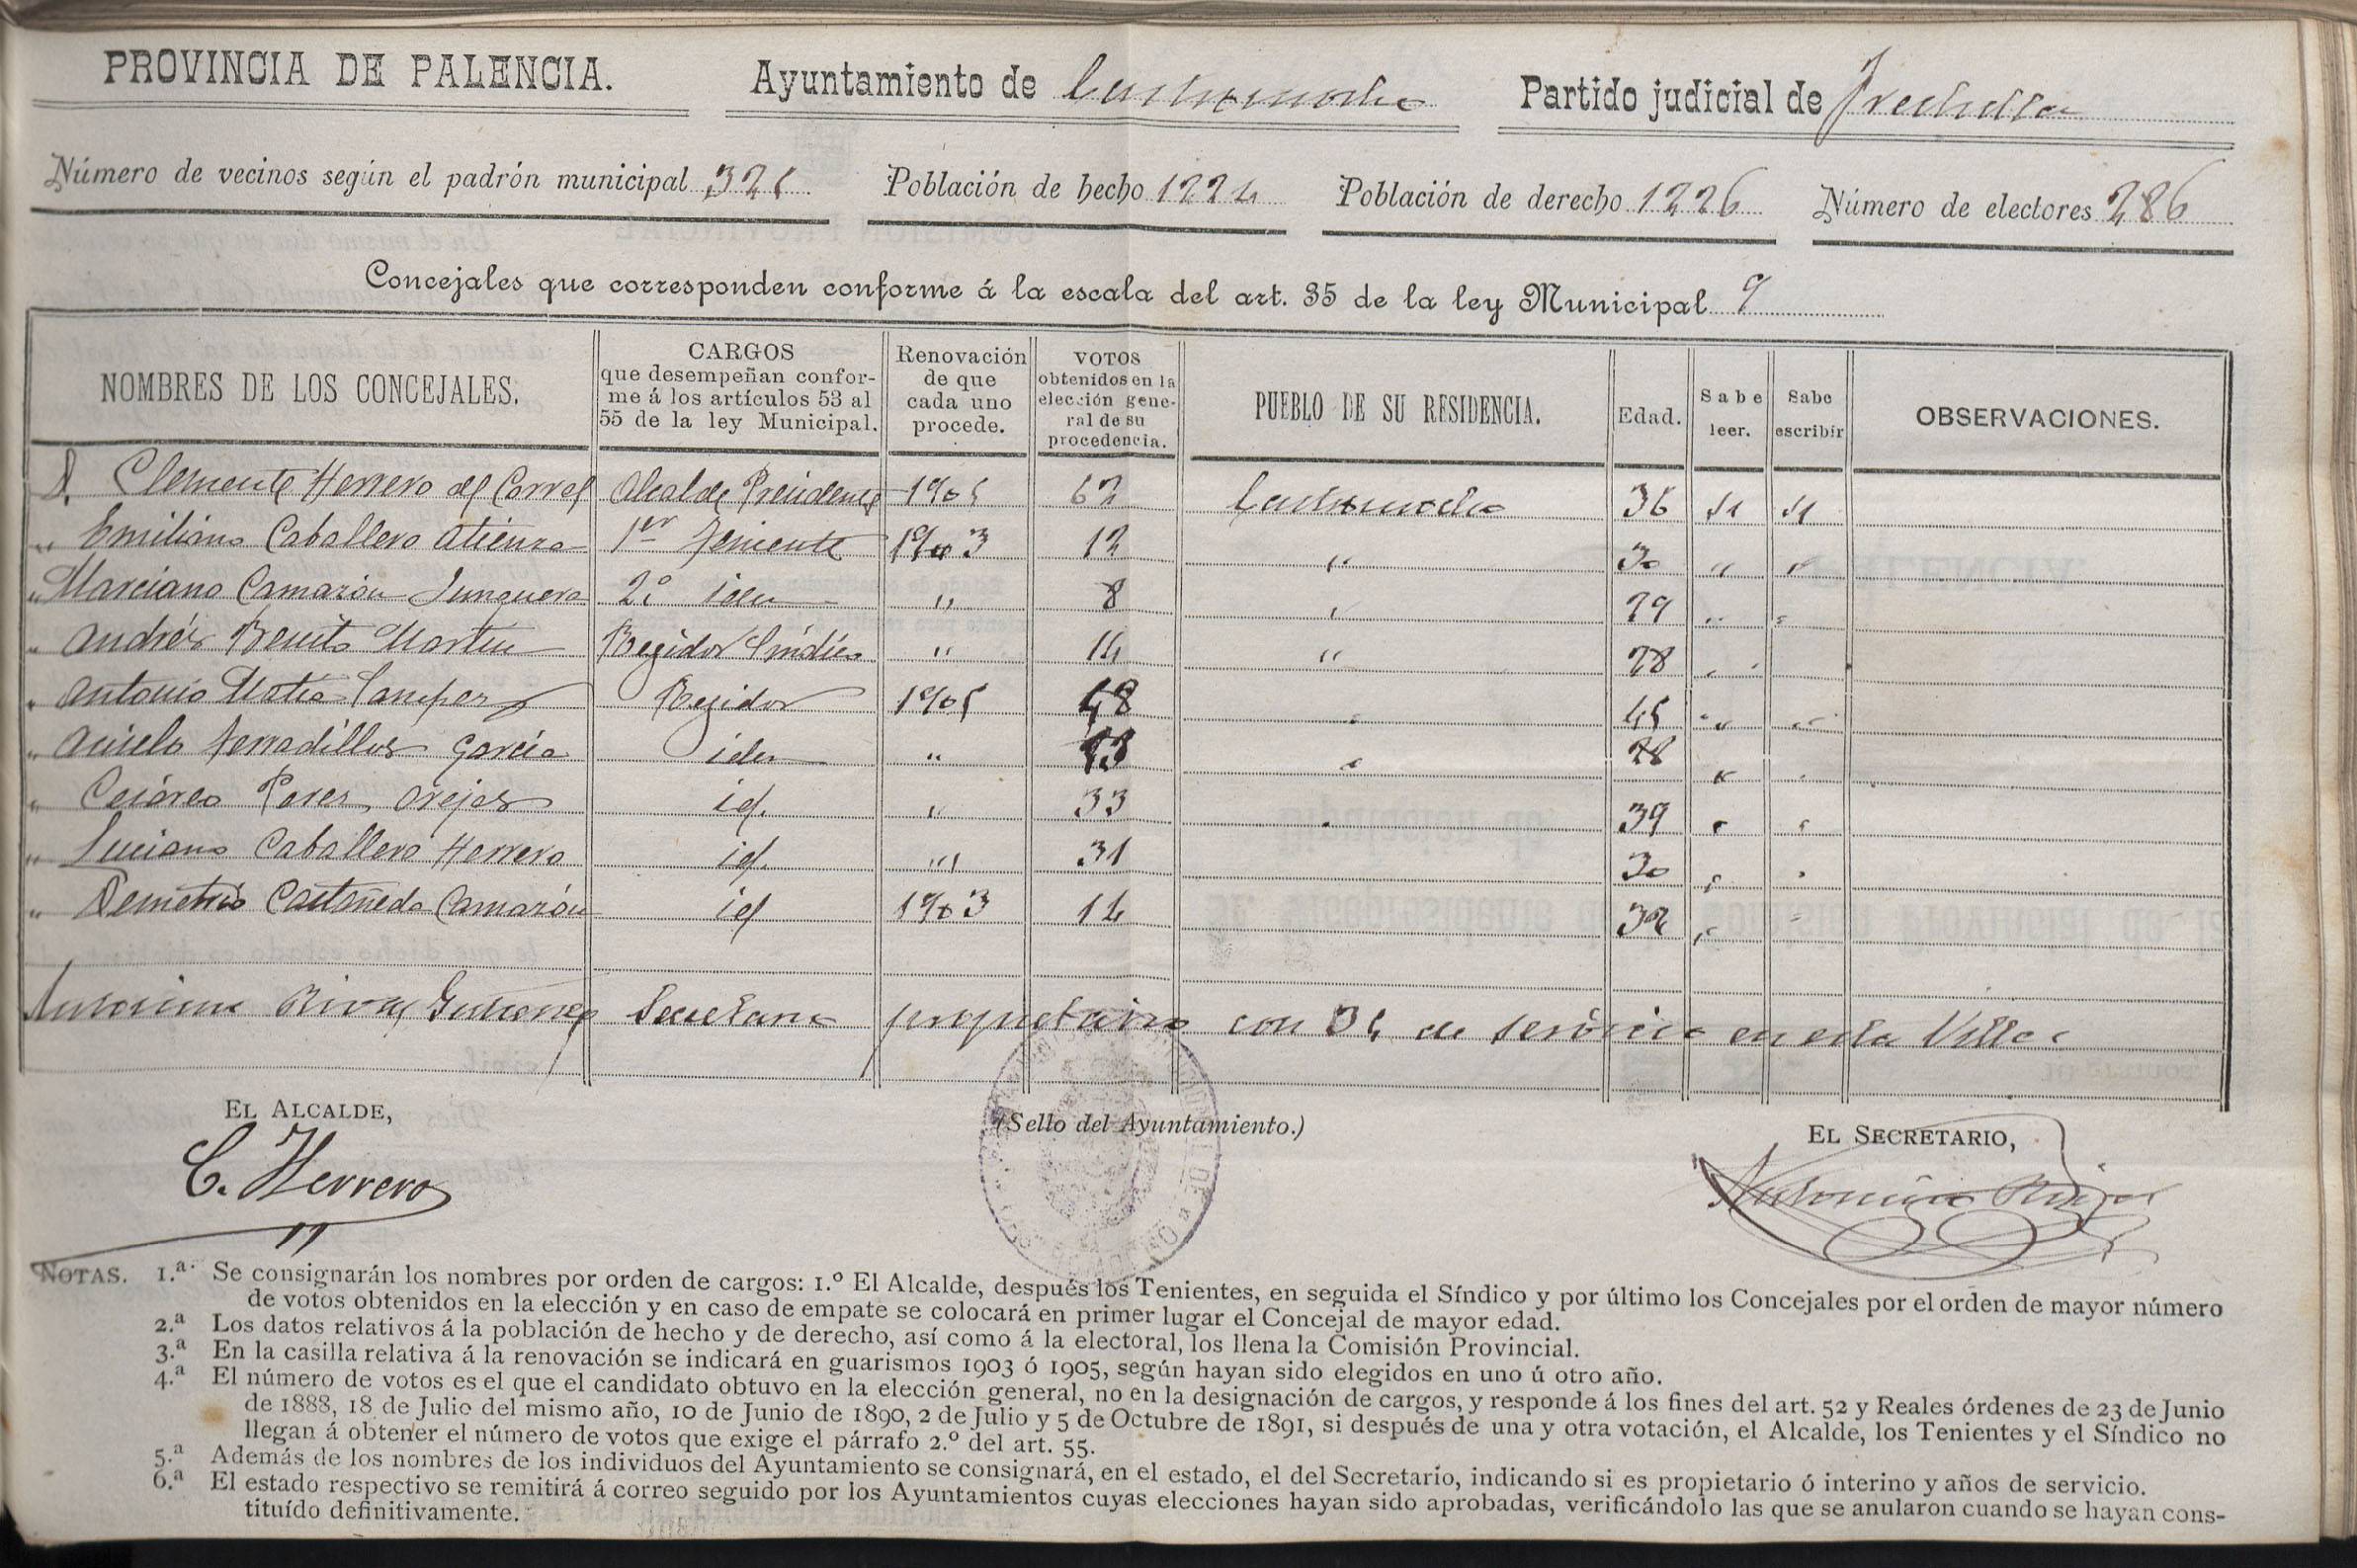 PROVINCIA DE PALENCIA. Ayuntamiento de Castromocho Partido judicial de Frechilla
Número de vecinos según el padrón municipal 325 Población de hecho 1224 Población de derecho 1226 Número de electores 286
Concejales que corresponden conforme á la escala del art. 35 de la ley Municipal 9
NOMBRES DE LOS CONCEJALES. CARGOS que desempeñan conforme á los artículos 53 al 55 de la ley Municipal. Renovación de que cada uno procede. VOTOS obtenidos en la elección general de su procedencia. PUEBLO DE SU RESIDENCIA. Edad. Sabe leer. Sabe escribir OBSERVACIONES.
D. Clemente Herrero del Corral Alcalde Presidente 1905 62 Castromocho 36 si si
" Emiliano Caballero Atienza 1er Teniente 1903 12 " 30 " "
" Marciano Camazón Junquera 2º idem " 8 " 29 " "
" Andrés Benito Martin Regidor Síndico " 14 " 28 " "
" Antonio Matia Regidor 1905 48 " 45 " "
" Terradillos García idem " " 28 " "
" Cesáreo Perez Orejas id. " 33 " 39 " "
" Luciano Caballero Herrero id. " 31 30 " "
" Demetrio Castañeda Camazón id 1903 14 32 " "
Antonino Rivas Gutierrez Secretario propietario con de servicio en esta Villa
EL ALCALDE, (Sello del Ayuntamiento.) EL SECRETARIO,
C. Herrero Antonino Rivas
NOTAS. 1.ª Se consignarán los nombres por orden de cargos: 1.º El Alcalde, después los Tenientes, en seguida el Síndico y por último los Concejales por el orden de mayor número
de votos obtenidos en la elección y en caso de empate se colocará en primer lugar el Concejal de mayor edad.
2.ª Los datos relativos á la población de hecho y de derecho, así como á la electoral, los llena la Comisión Provincial.
3.ª En la casilla relativa á la renovación se indicará en guarismos 1903 ó 1905, según hayan sido elegidos en uno ú otro año.
4.ª El número de votos es el que el candidato obtuvo en la elección general, no en la designación de cargos, y responde á los fines del art. 52 y Reales órdenes de 23 de Junio
de 1888, 18 de Julio del mismo año, 10 de Junio de 1890, 2 de Julio y 5 de Octubre de 1891, si después de una y otra votación, el Alcalde, los Tenientes y el Síndico no
llegan á obtener el número de votos que exige el párrafo 2.º del art. 55.
5.ª Además de los nombres de los individuos del Ayuntamiento se consignará, en el estado, el del Secretario, indicando si es propietario ó interino y años de servicio.
6.ª El estado respectivo se remitirá á correo seguido por los Ayuntamientos cuyas elecciones hayan sido aprobadas, verificándolo las que se anularon cuando se hayan cons-
tituído definitivamente.